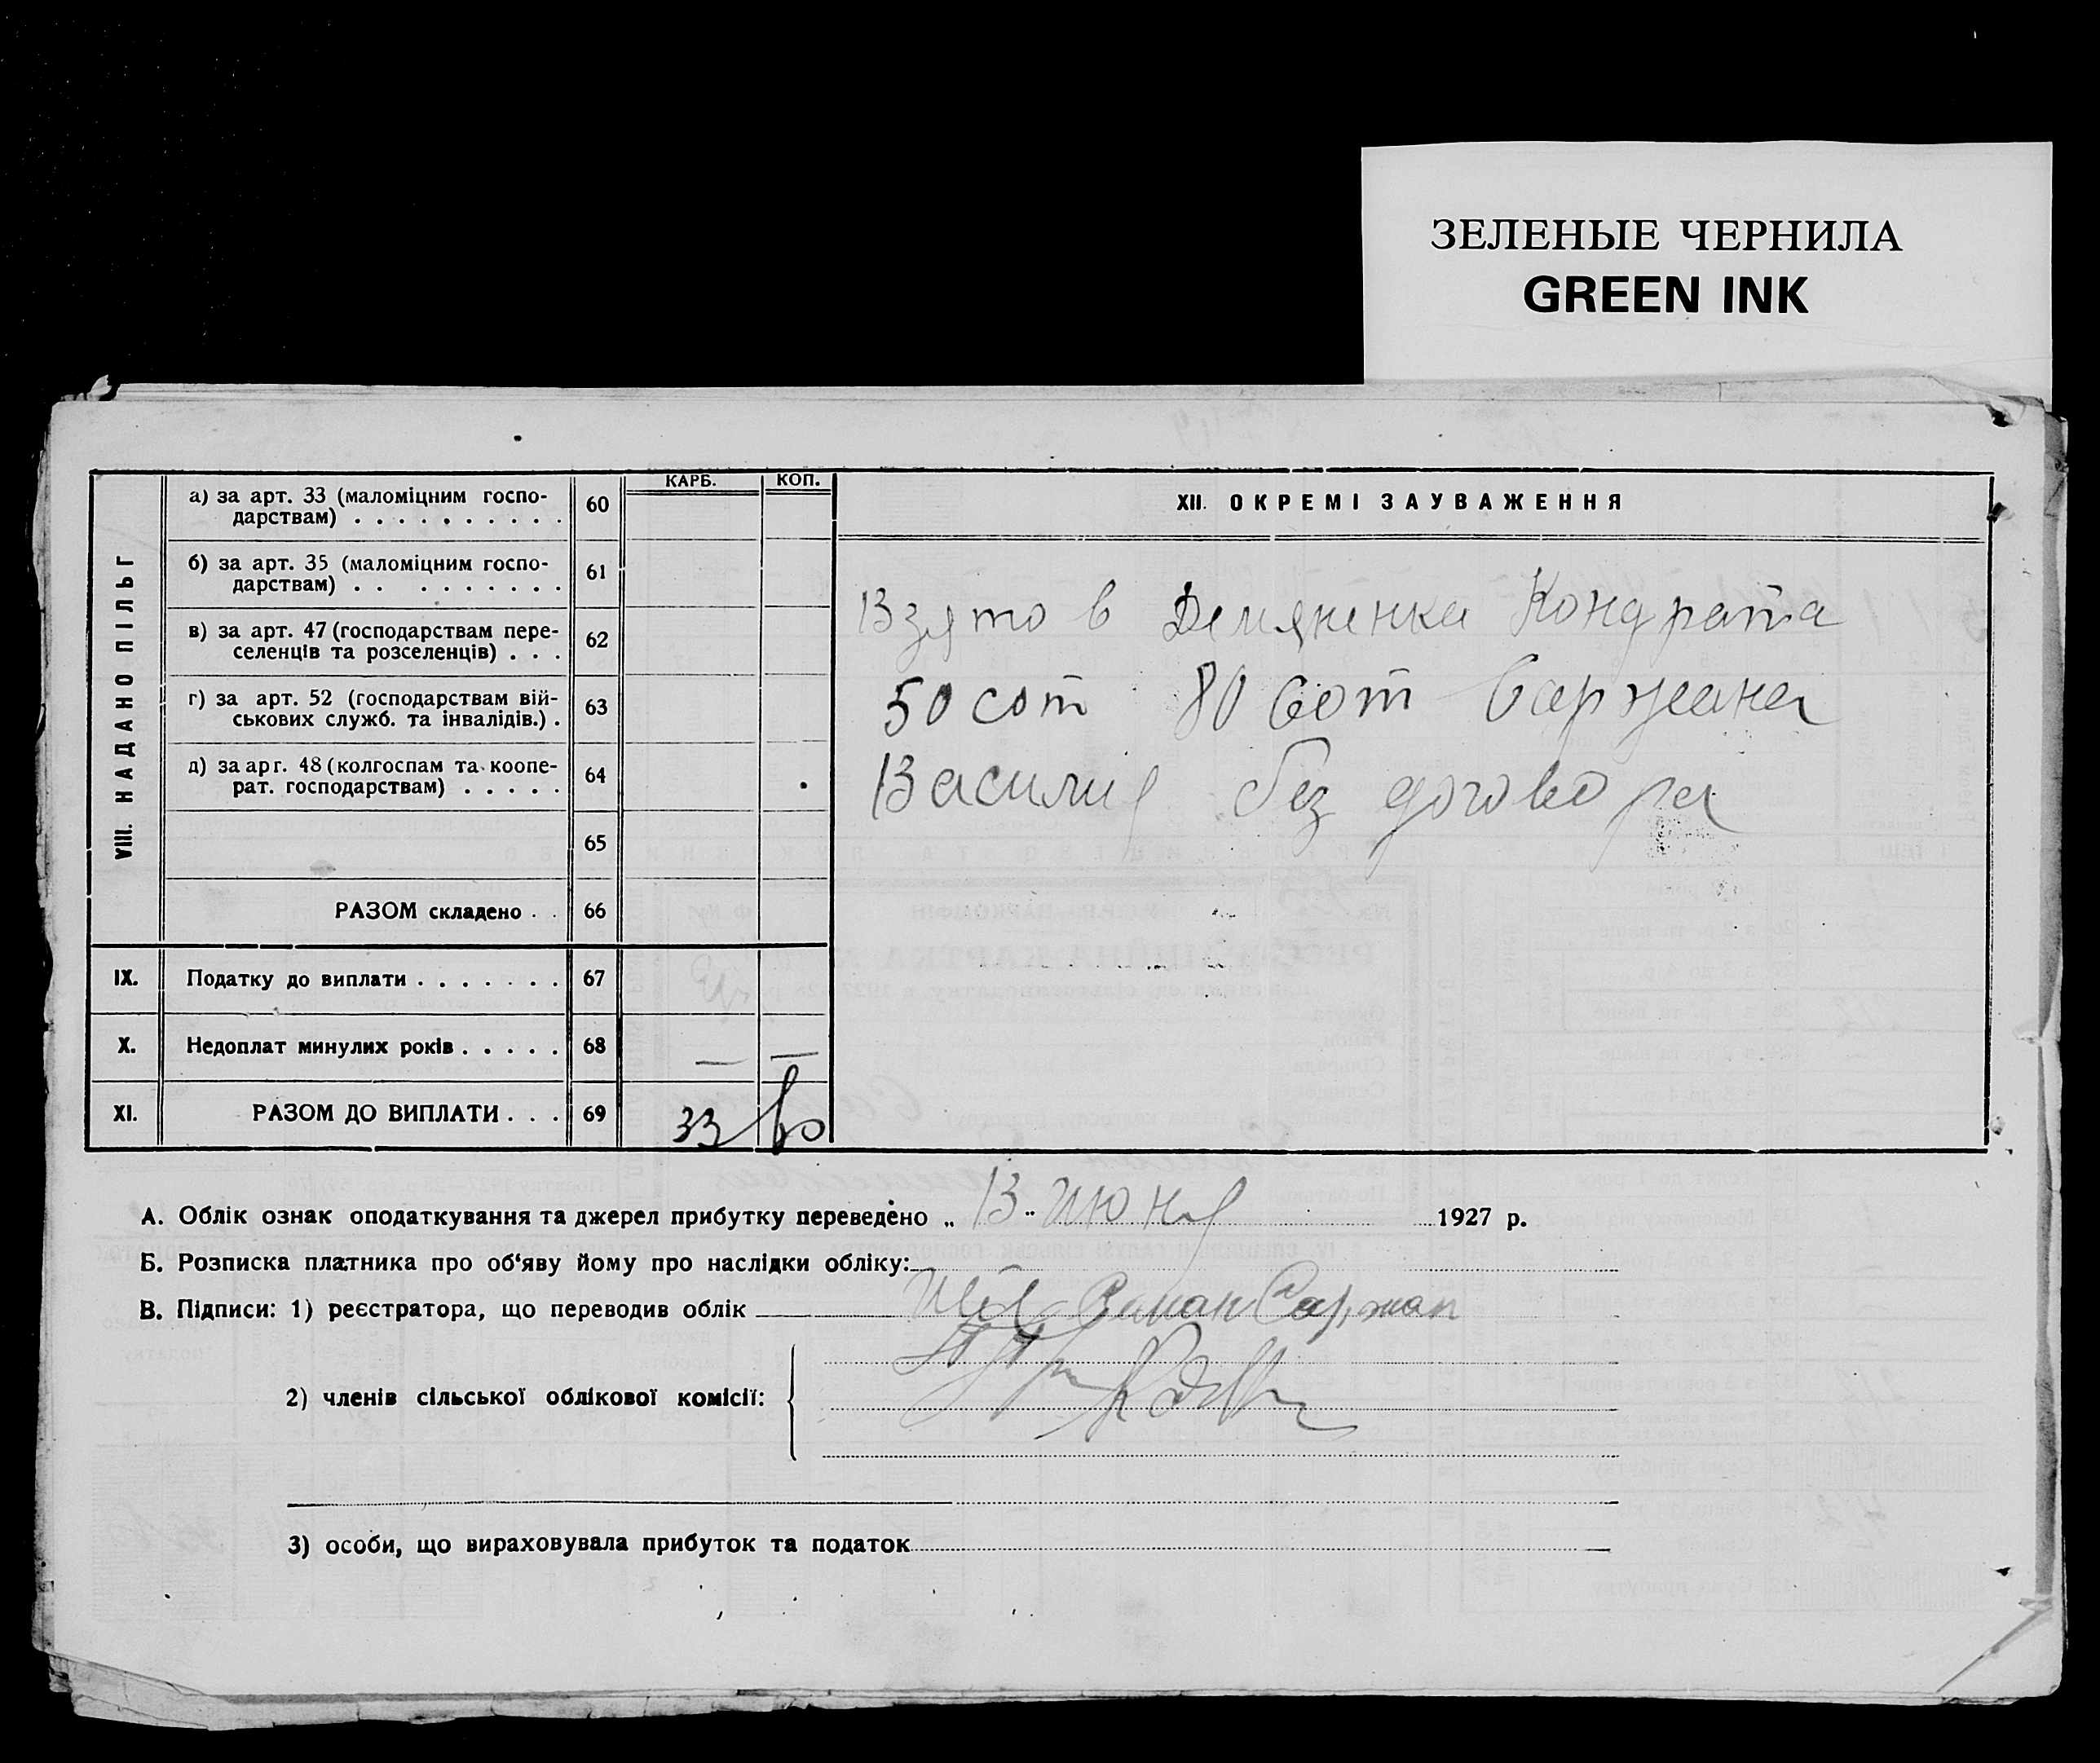 ЗЕЛЕНЫЕ ЧЕРНИЛА
GREEN INK
VIII. НАДАНО ПІЛЬГ
КАРБ. КОП.
а) за арт. 33 (маломіцним госпо-
дарствам) . . . . . . . . . . 60
б) за арт. 35 (маломіцним госпо-
дарствам) . . . . . . . . . 61
в) за арт. 47 (господарствам пере-
селенців та розселенців) . . . 62
г) за арт. 52 (господарствам вій-
ськових служб. та інвалідів.) . 63
д) за арг. 48 (колгоспам та коопе-
рат. господарствам) . . . . . 64
65
РАЗОМ складено . . 66
IX. Податку до виплати . . . . . . . 67
X. Недоплат минулих років . . . . . 68 — —
XI. РАЗОМ ДО ВИПЛАТИ . . . 69 33
XII. ОКРЕМІ ЗАУВАЖЕННЯ
Взято в Демяненка Кондрата
50 сот 80 сот Саржана
Василия без договора
А. Облік ознак оподаткування та джерел прибутку переведено „ 13 " июня 1927 р.
Б. Розписка платника про об'яву йому про наслідки обліку:
В. Підписи: 1) реєстратора, що переводив облік
Саржан
2) членів сільської облікової комісії:
3) особи, що вираховувала прибуток та податок